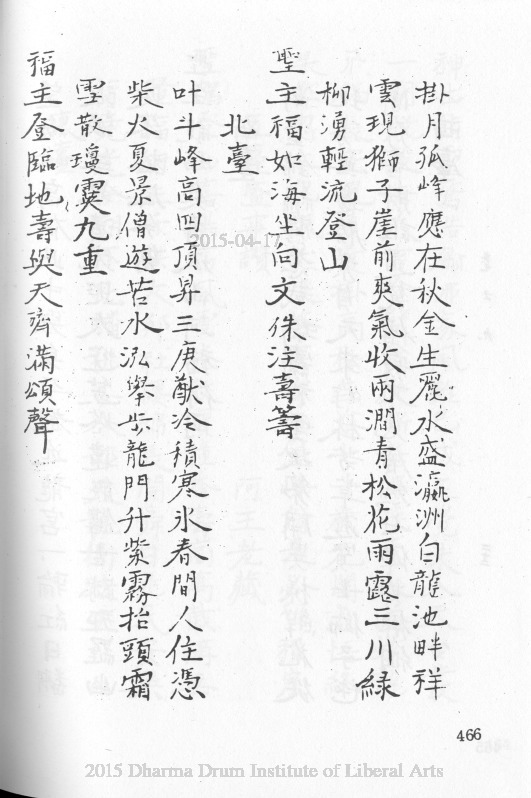 掛月孤峰應在秋金生麗水盛瀛洲白龍池畔祥
雲現獅子崖前爽氣收兩澗青松花雨露三川緑
柳湧輕流登山
聖主福如海坐向文侏注壽籌
北臺
叶斗峰高四頂昇三庚猷冷積寒氷春間人住憑
柴火夏景僧遊苦水泓舉步龍門升紫霧抬頭霜
雪散瓊霙九重
福主登臨地壽與天齊滿頌聲
466
2015-04-17
2015 Dharma Drum Institute of Liberal Arts